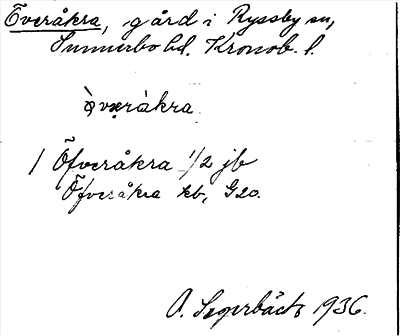 Överåkra, gård i Ryssby sn,
Sunnerbo hd. Kronob. l.
òvəràkra
1 Öfveråkra 1/2 jb
Öfveråkra kb, G20.
A. Segerbäck 1936.